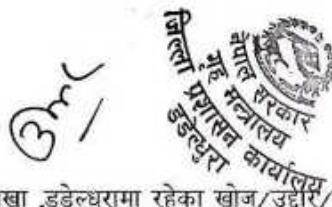 नेपाल सरकार
गृह मन्त्रालय
जिल्ला प्रशासन कार्यालय
डडेल्धुरा
डडेल्धुरामा रहेका खोज/उद्दार/